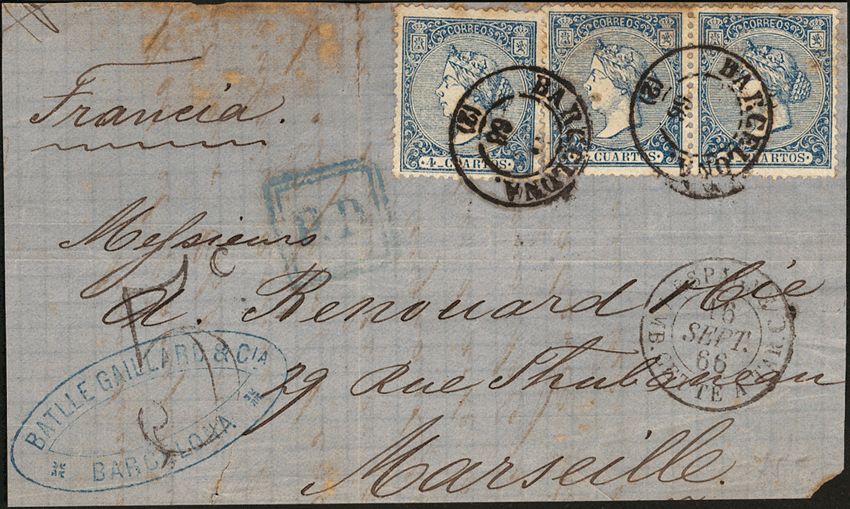 CORREOS
CORREOS
CORREOS
4 CUARTOS
CUARTOS
CUARTOS
BARCELONA.
66
(2)
BARCELONA
66
(2)
Francia.
P.D
Messieurs
A. Renouard & Cie
29 Rue Thubaneau
Marseille.
16
SEPT.
66
BATLLE GAILLARD & CIA
BARCELONA